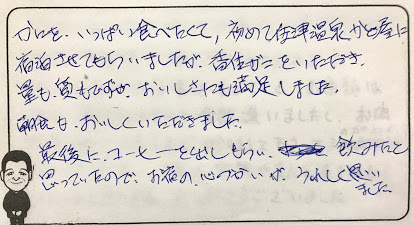 かにを、いっぱい食べたくて、初めて佳津温泉かど屋に
宿泊させてもらいましたが、香住ガニをいただき、
量も、質もですが、おいしさにも満足しました。
朝食も、おいしくいただきました。
最後に、コーヒーを出しもらい、飲みたいと
思っていたので、お宿の、心づかいが、うれしく思い
ました。